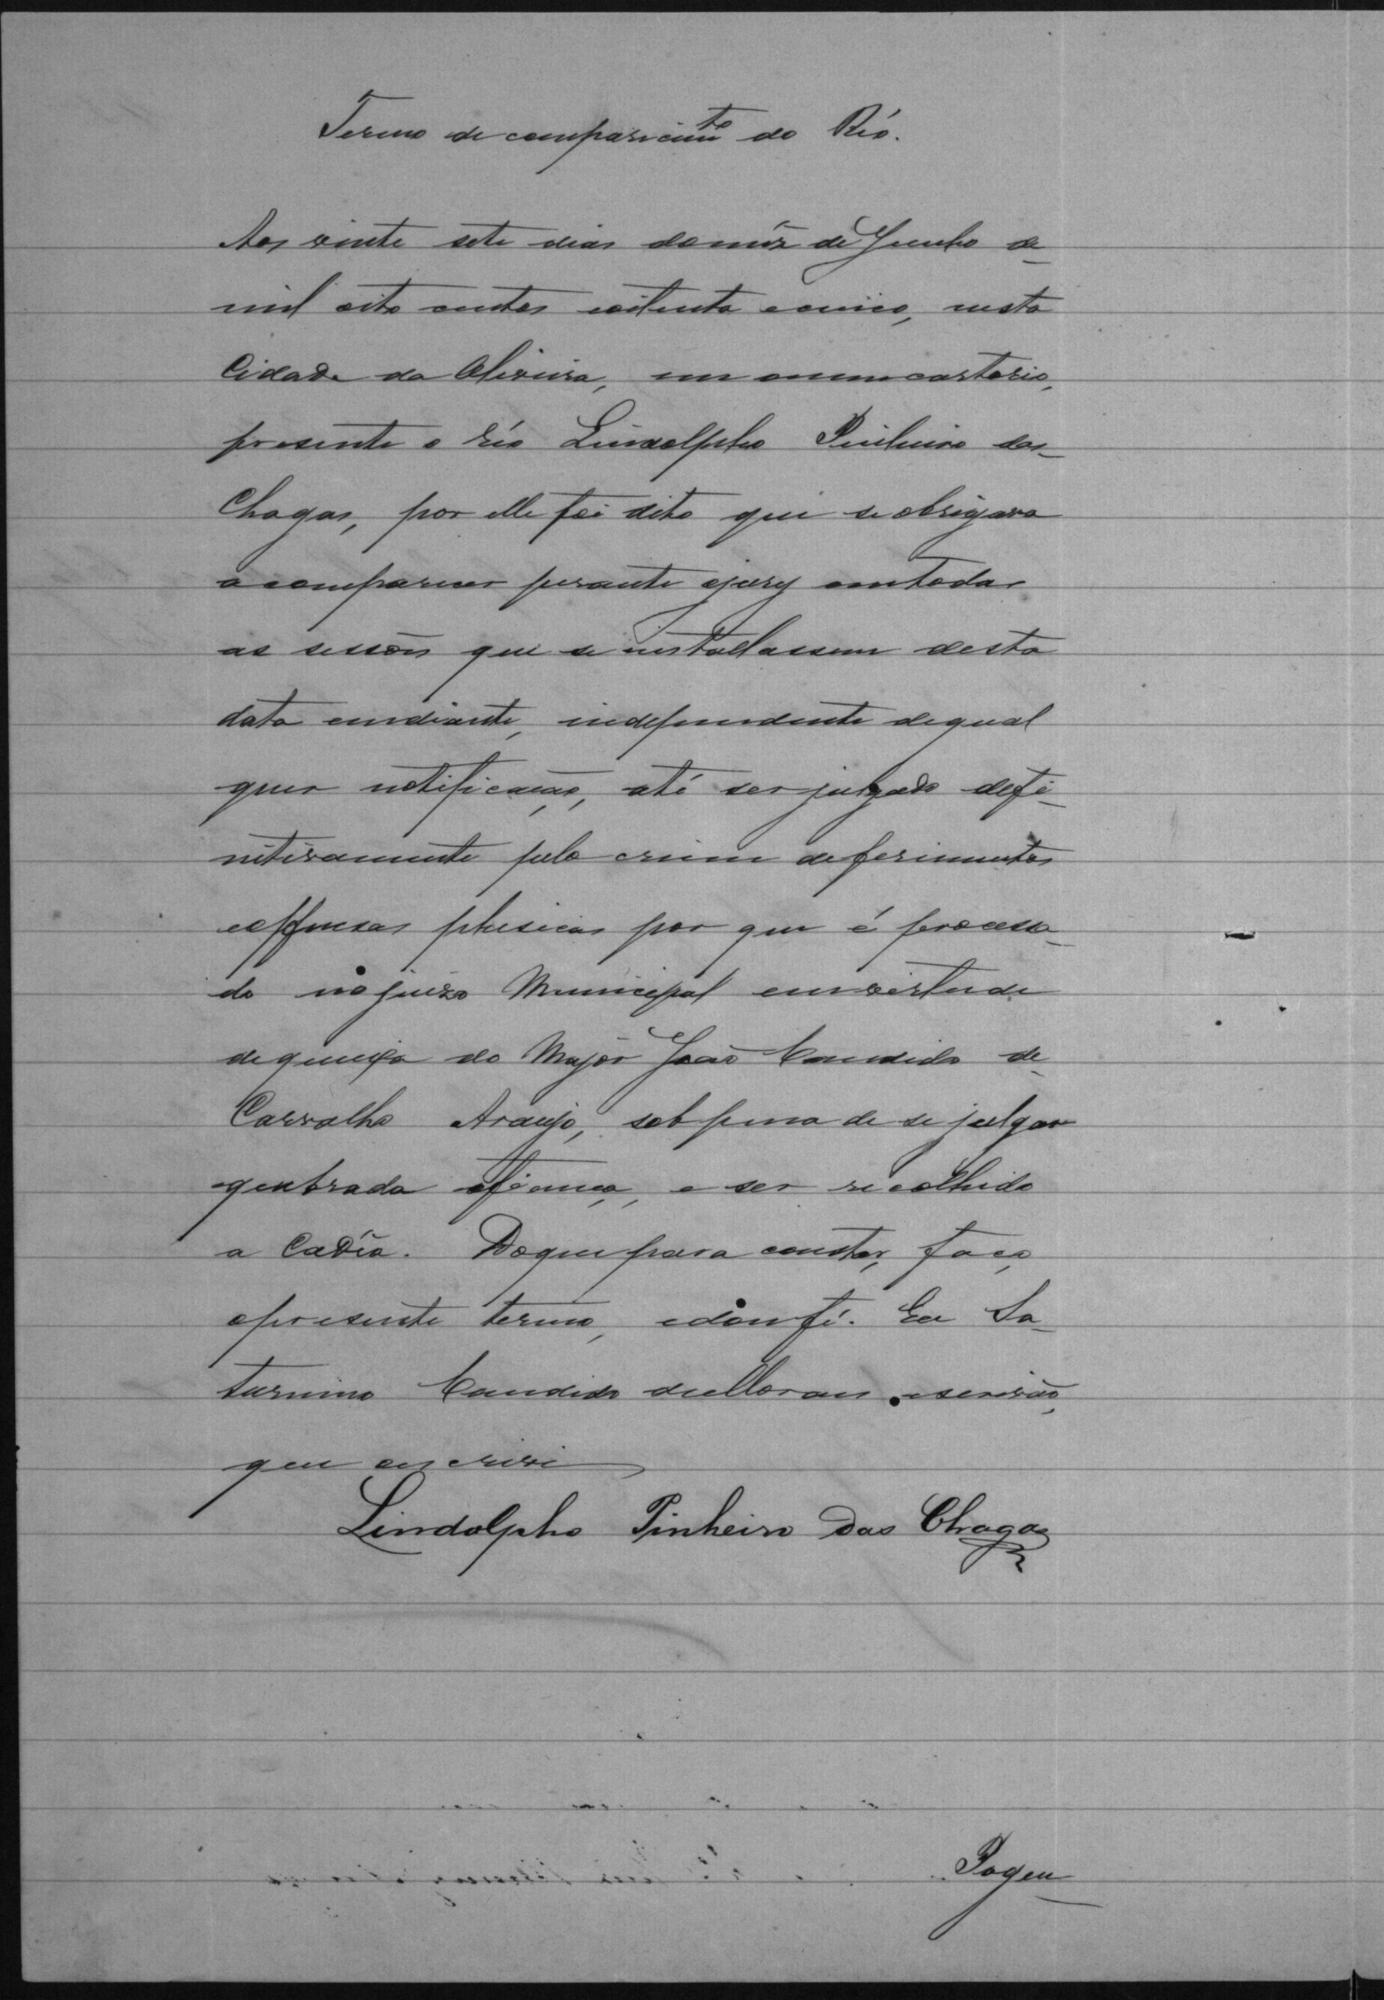 Termo de comparecimto do Réo.
Aos vinte sete dias do mêz de Junho de
mil oito centos e oitenta e cinco, nesta
Cidade da Oliveira, em meu cartorio,
presente o réo Lindolpho Pinheiro das
Chagas, por elle foi dito que se obrigava
a comparecer perante o jury em todas
as sessões que se installassem desta
data em diante, independente de qual
quer notificação, até ser julgado defi-
nitivamente pelo crime de ferimentos
e offensas phisicas por que é processa-
do no juizo Municipal em virtude
de queixa do Major João Candido de
Carvalho Araujo, sob pena de se julgar
quebrada a fiança, e ser recolhido
a Cadêa. Do que para constar, faço
o presente termo, e dou fé. Eu Sa-
turnino Candido de Moraes escrivão,
que escrevi
Lindolpho Pinheiro das Chagas
Pagou